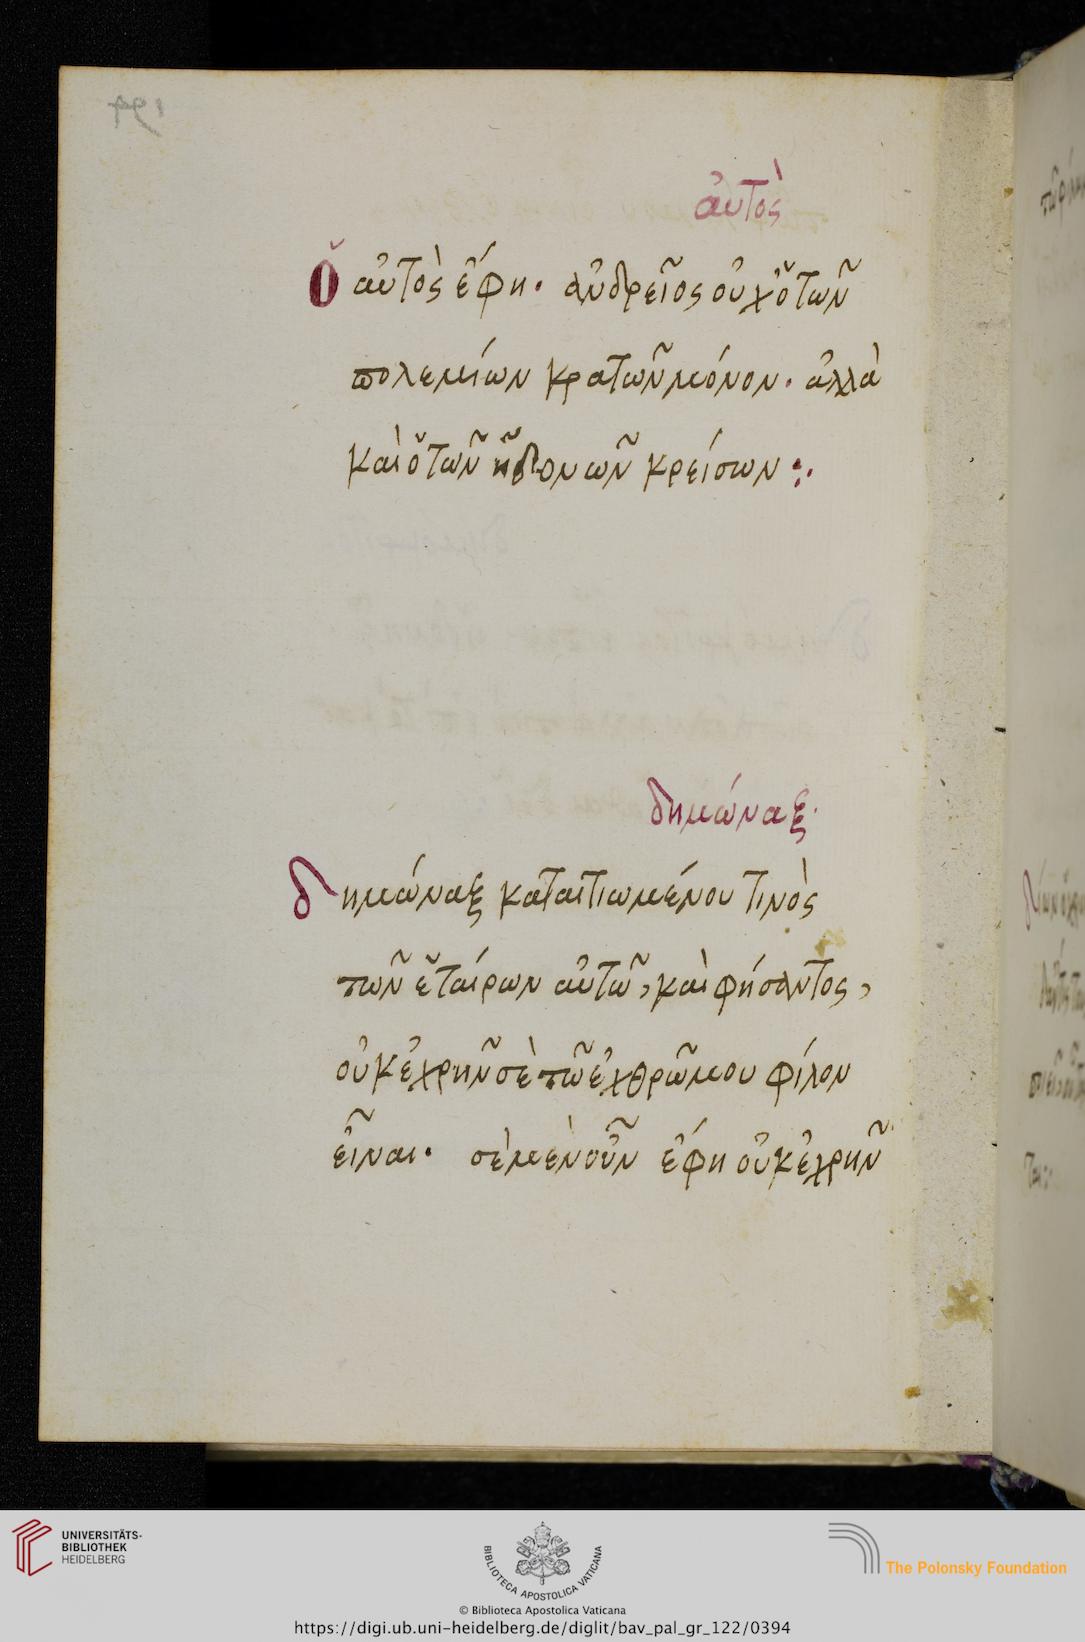 αὐτὸς
Ὁ αὐτὸς ἔφη. ἀνδρεῖος οὐχ ὁ τῶν
πολεμίων κρατῶν μόνον. ἀλλὰ
καὶ ὁ τῶν ἡδονῶν κρείσων :.
δημώναξ.
δημώναξ καταιτιωμένου τινὸς
τῶν ἑταίρων αὐτῶ, καὶ φήσαντος,
οὐκ ἐχρῆν σὲ τῶ ἐχθρῶ μου φίλον
εἶναι. σὲ μὲν οὖν ἔφη οὐκ ἐχρῆν
UNIVERSITÄTS-
BIBLIOTHEK
HEIDELBERG
BIBLIOTECA APOSTOLICA VATICANA
The Polonsky Foundation
© Biblioteca Apostolica Vaticana
https://digi.ub.uni-heidelberg.de/diglit/bav_pal_gr_122/0394